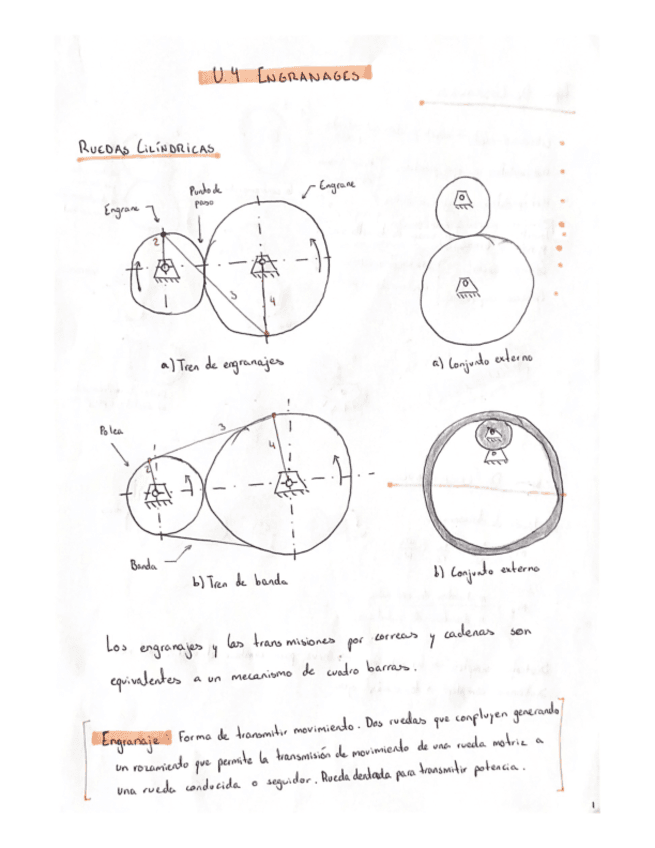 U.4 ENGRANAGES
RUEDAS CILÍNDRICAS
Engrane
Punto de
paso
Engrane
2
3
4
a) Tren de engranajes
a) Conjunto externo
Polea
2
3
4
Banda
b) Tren de banda
b) Conjunto externo
Los engranajes y las transmisiones por correas y cadenas son
equivalentes a un mecanismo de cuatro barras.
Engranaje: Forma de transmitir movimiento. Dos ruedas que confluyen generando
un rozamiento que permite la transmisión de movimiento de una rueda motriz a
una rueda conducida o seguidor. Rueda dentada para transmitir potencia.
1